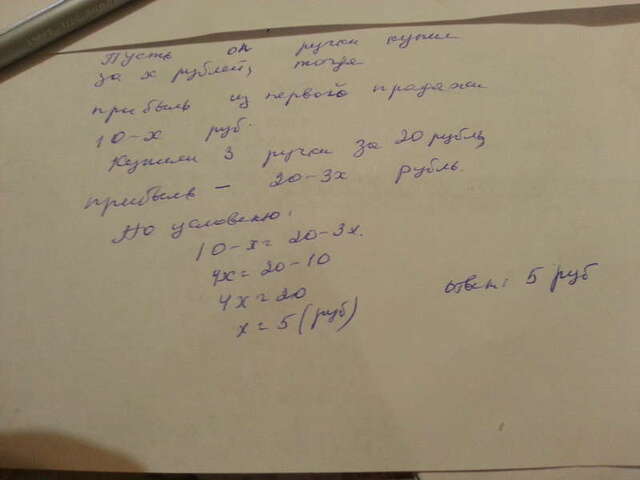 Пусть он ручки купил
за х рублей, тогда
прибыль из первого продажи
10-х руб.
Купили 3 ручки за 20 рубль,
прибыль - 20-3х рубль.
По условию:
10-х= 20-3х.
4х=20-10
4х=20
х=5(руб)
Ответ: 5 руб